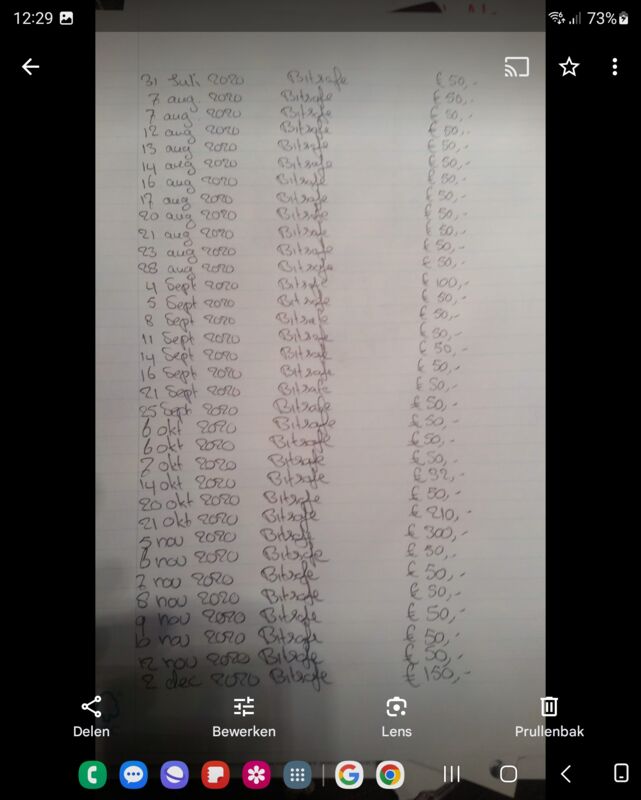 12:29 73%
31 Juli 2020 Bitsafe € 50,-
7 aug. 2020 Bitsafe € 50,-
7 aug 2020 Bitsafe € 50,-
12 aug 2020 Bitsafe € 50,-
13 aug 2020 Bitsafe € 50,-
14 aug 2020 Bitsafe € 50,-
16 aug 2020 Bitsafe € 50,-
17 aug 2020 Bitsafe € 50,-
20 aug 2020 Bitsafe € 50,-
21 aug 2020 Bitsafe € 50,-
23 aug 2020 Bitsafe € 50,-
28 aug 2020 Bitsafe € 50,-
4 Sept 2020 Bitsafe € 100,-
5 Sept 2020 Bitsafe € 50,-
8 Sept 2020 Bitsafe € 50,-
11 Sept 2020 Bitsafe € 50,-
14 Sept 2020 Bitsafe € 50,-
16 Sept 2020 Bitsafe € 50,-
21 Sept 2020 Bitsafe € 50,-
25 Sept 2020 Bitsafe € 50,-
6 okt 2020 Bitsafe € 50,-
6 okt 2020 Bitsafe € 50,-
7 okt 2020 Bitsafe € 50,-
14 okt 2020 Bitsafe € 92,-
20 okt 2020 Bitsafe € 50,-
21 okt 2020 Bitsafe € 210,-
5 nov 2020 Bitsafe € 300,-
6 nov 2020 Bitsafe € 50,-
7 nov 2020 Bitsafe € 50,-
8 nov 2020 Bitsafe € 50,-
9 nov 2020 Bitsafe € 50,-
10 nov 2020 Bitsafe € 50,-
12 nov 2020 Bitsafe € 50,-
2 dec 2020 Bitsafe € 150,-
Delen Bewerken Lens Prullenbak